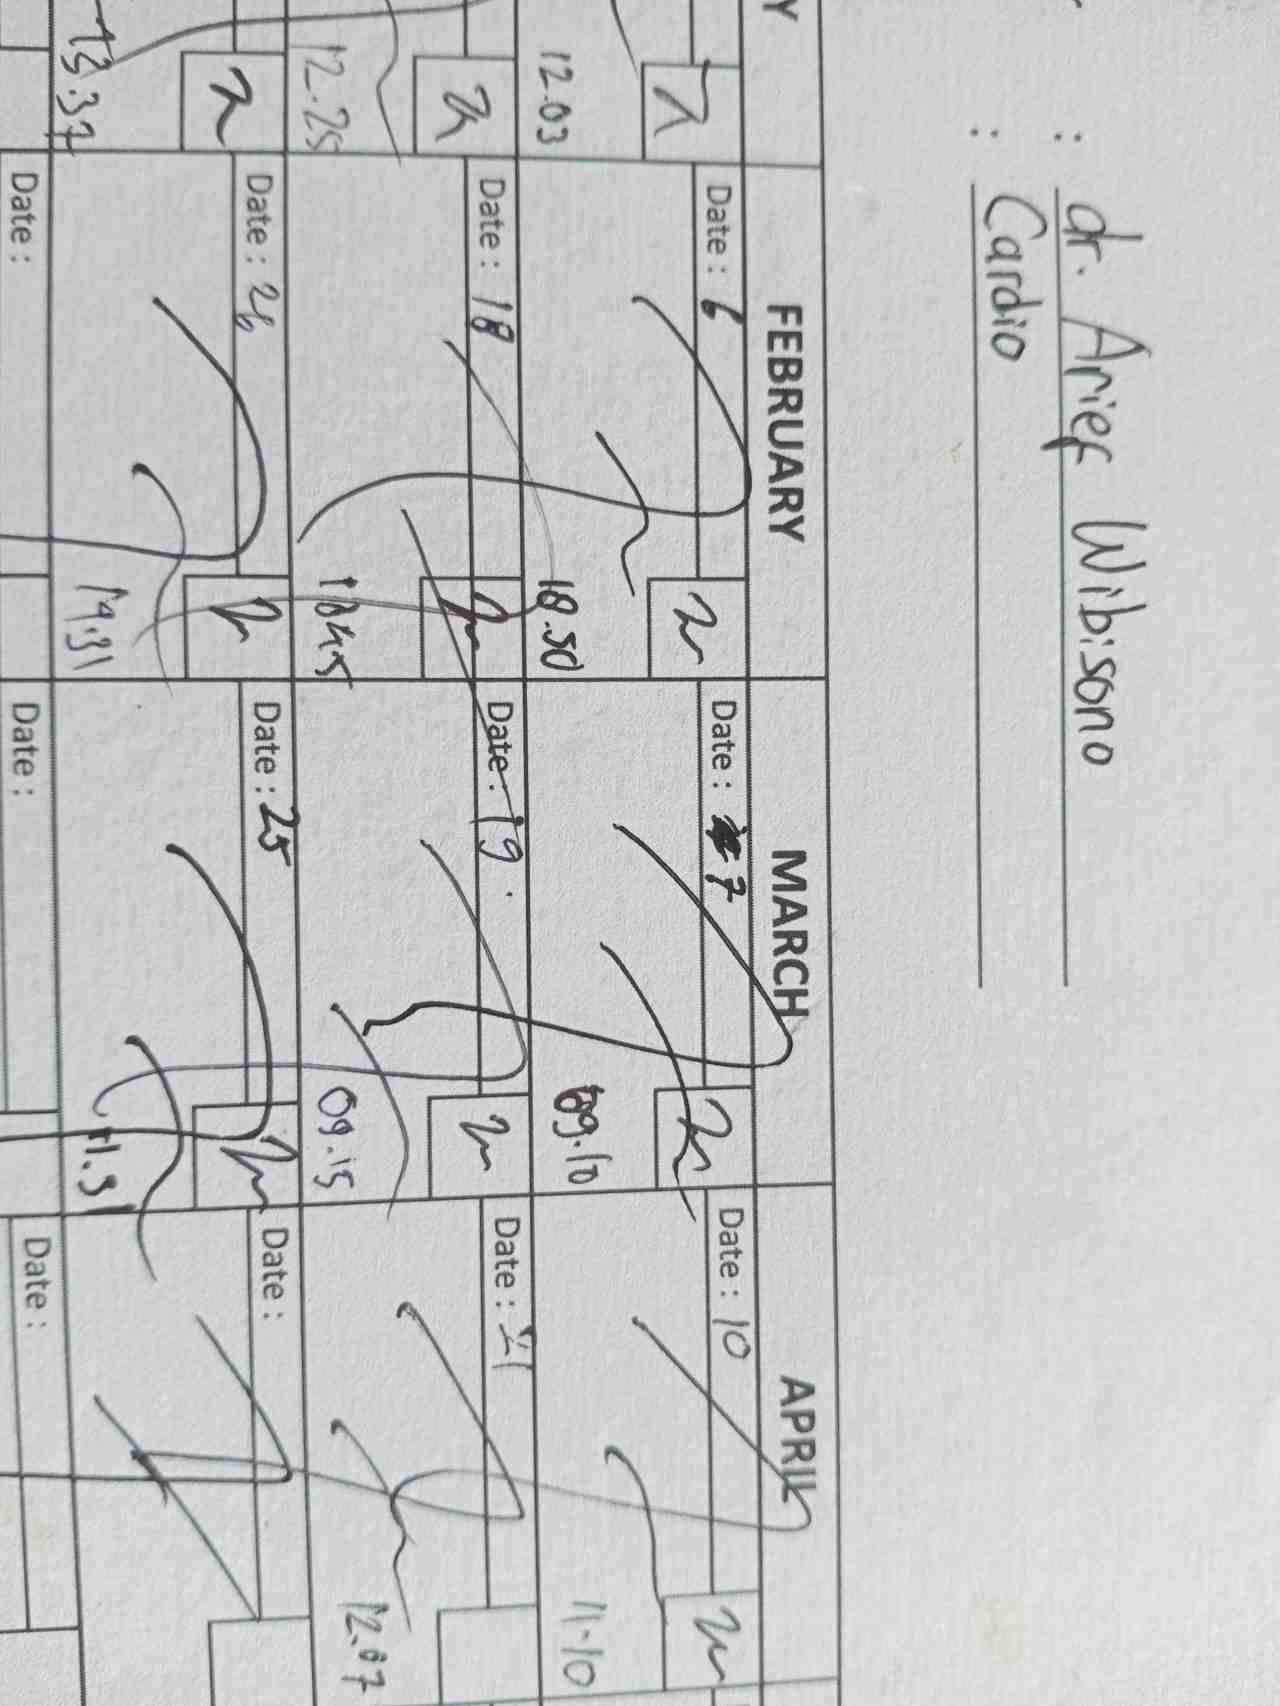 : dr. Arief Wibisono
: Cardio
Y FEBRUARY MARCH APRIL
Date : 6 Date : 7 Date : 10
12.03 18.50 09.10 11.10
Date : 18 Date : 19 Date : 21
12.25 1845 09.15 12.07
Date : 26 Date : 25 Date :
13.37 14.31 11.31
Date : Date : Date :